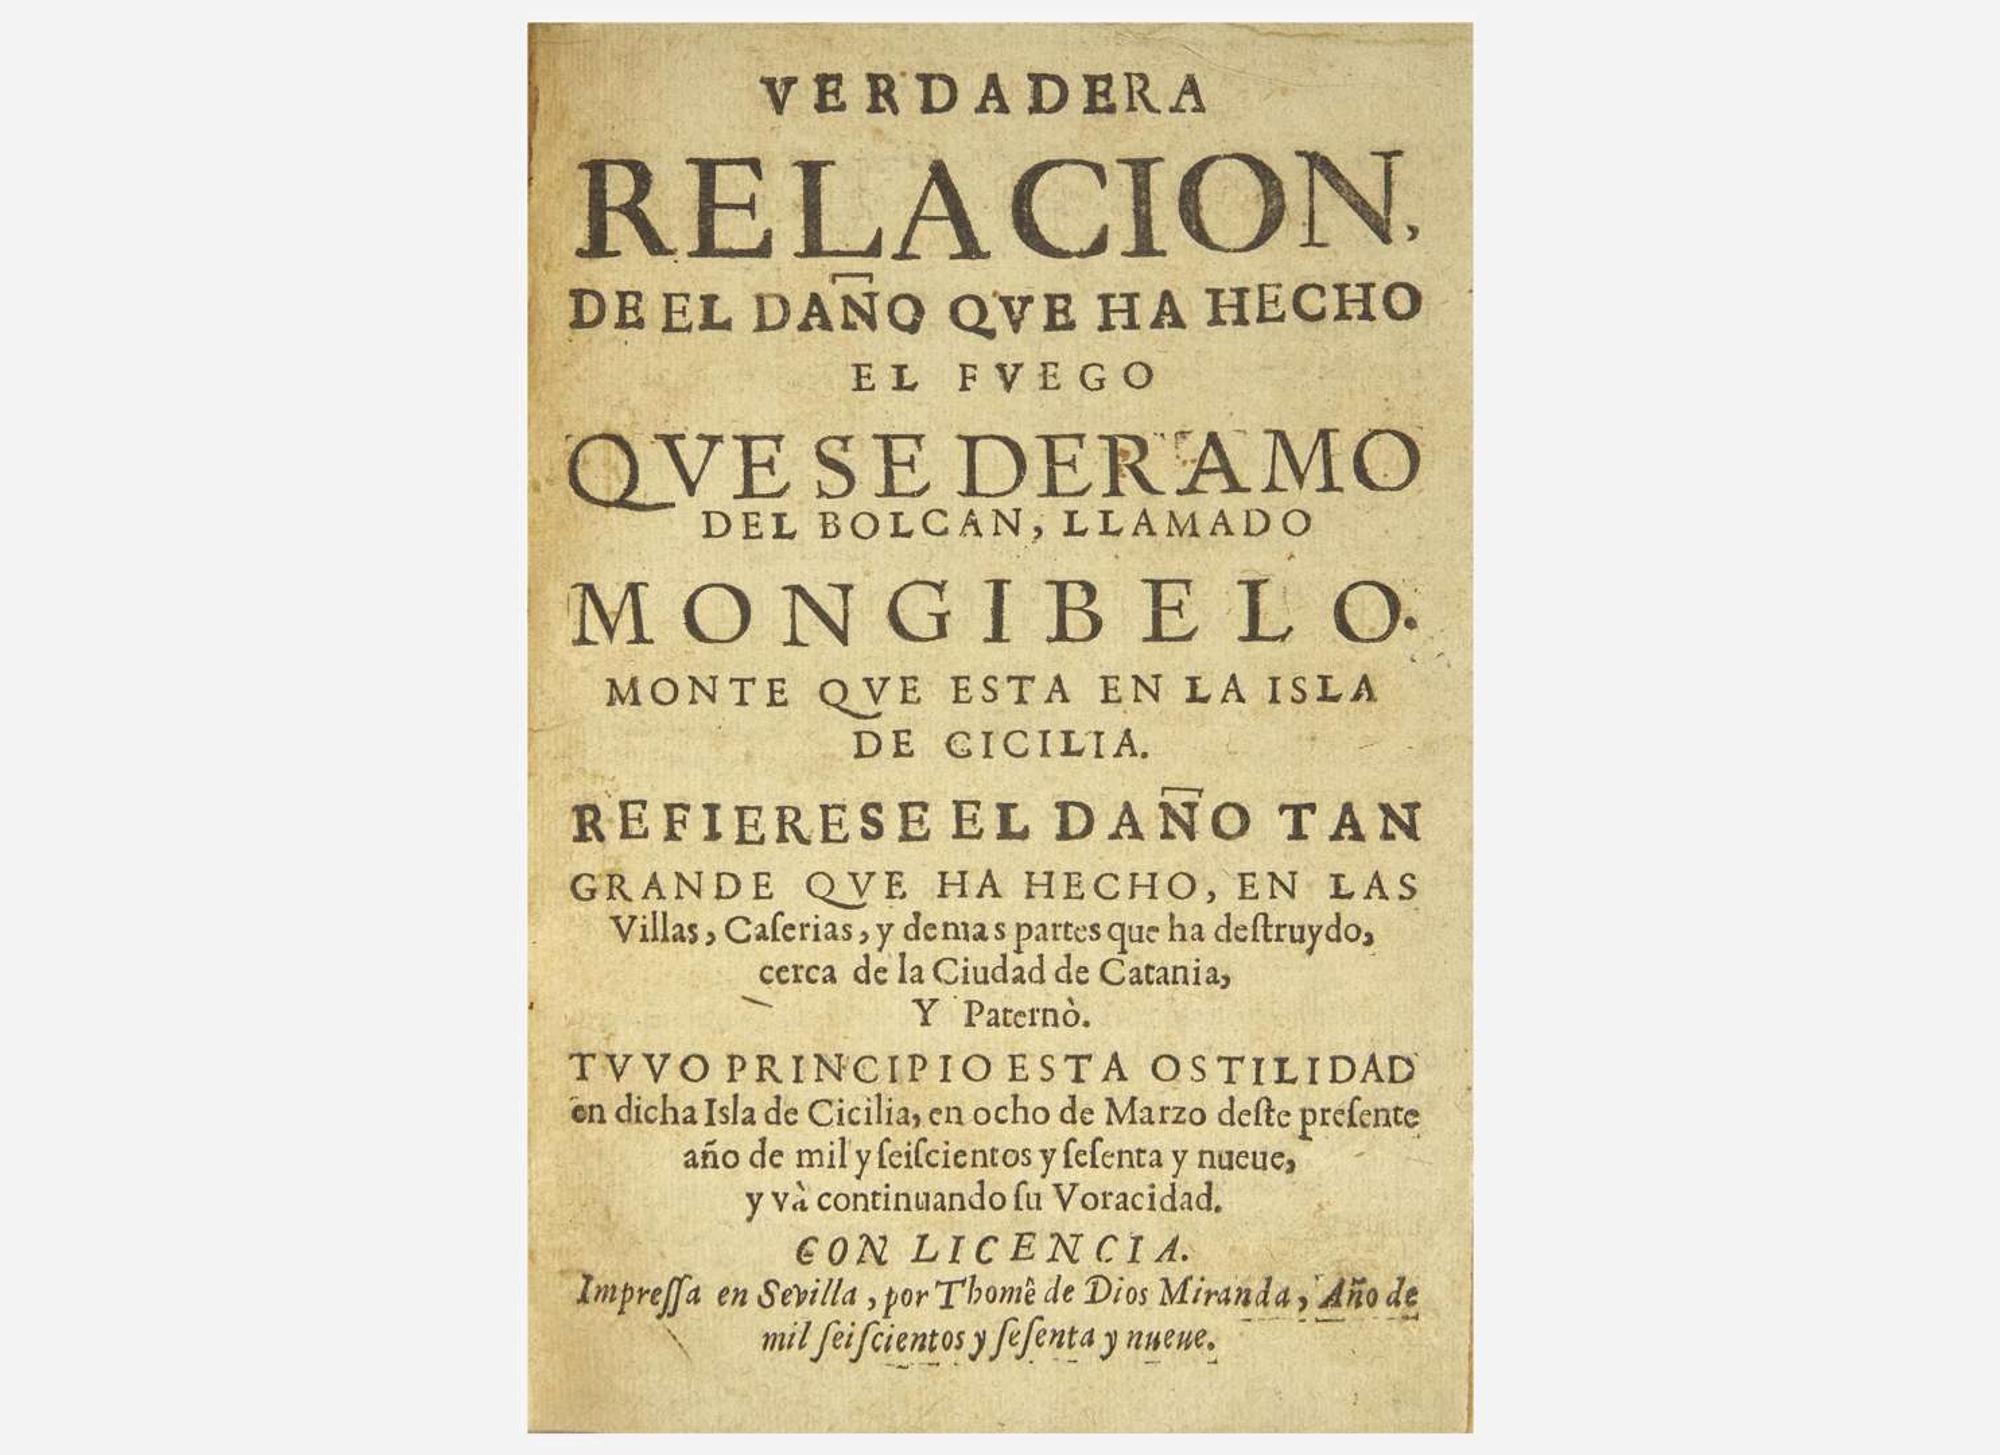 VERDADERA
RELACION,
DE EL DAÑO QVE HA HECHO
EL FVEGO
QVE SE DERAMO
DEL BOLCAN, LLAMADO
MONGIBELO.
MONTE QVE ESTA EN LA ISLA
DE CICILIA.
REFIERESE EL DAÑO TAN
GRANDE QVE HA HECHO, EN LAS
Villas, Caſerias, y demas partes que ha deſtruydo,
cerca de la Ciudad de Catania,
Y Paternò.
TVVO PRINCIPIO ESTA OSTILIDAD
en dicha Isla de Cicilia, en ocho de Marzo deſte preſente
año de mil y ſeiſcientos y ſeſenta y nueue,
y và continuando ſu Voracidad.
CON LICENCIA.
Impreſſa en Sevilla, por Thomê de Dios Miranda, Año de
mil ſeiſcientos y ſeſenta y nueue.